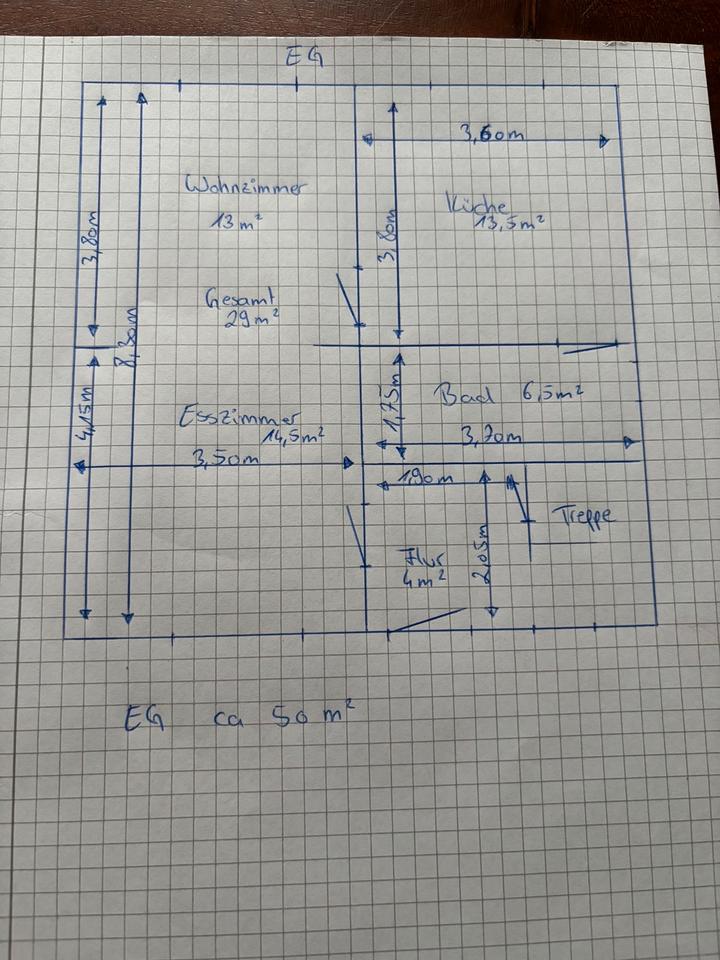 EG
3,60m
Wohnzimmer
13 m²
Küche
13,5m²
3,80m
3,80m
Gesamt
29m²
8,30m
4,15m
1,75m
Bad 6,5m²
Esszimmer
14,5m²
3,50m
3,70m
1,90m
Treppe
Flur
4m²
2,05m
EG ca 50 m²